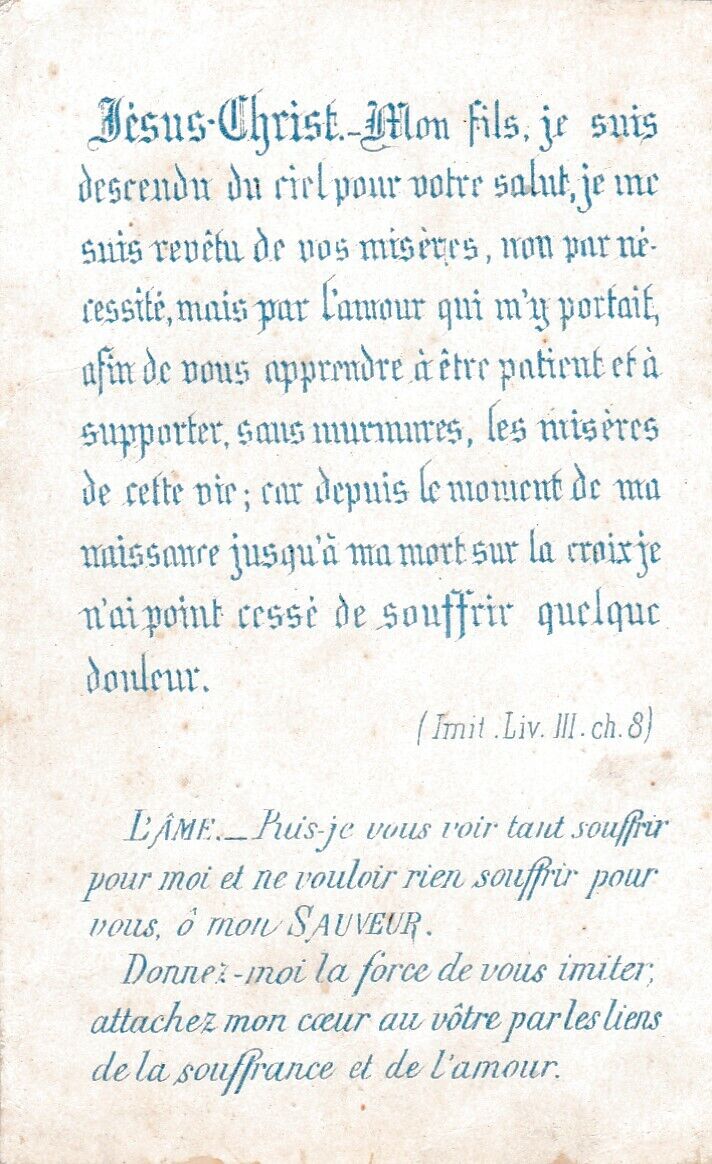 Jésus-Christ.-Mon fils, je suis
descendu du ciel pour votre salut, je me
suis revêtu de vos misères, non par né-
cessité, mais par l'amour qui m'y portait,
afin de vous apprendre à être patient et à
supporter, sans murmures, les misères
de cette vie; car depuis le moment de ma
naissance jusqu'à ma mort sur la croix je
n'ai point cessé de souffrir quelque
douleur.
(Imit. Liv. III. ch. 8)
L'ÂME._Puis-je vous voir tant souffrir
pour moi et ne vouloir rien souffrir pour
vous, ô mon SAUVEUR.
Donnez-moi la force de vous imiter;
attachez mon cœur au vôtre par les liens
de la souffrance et de l'amour.